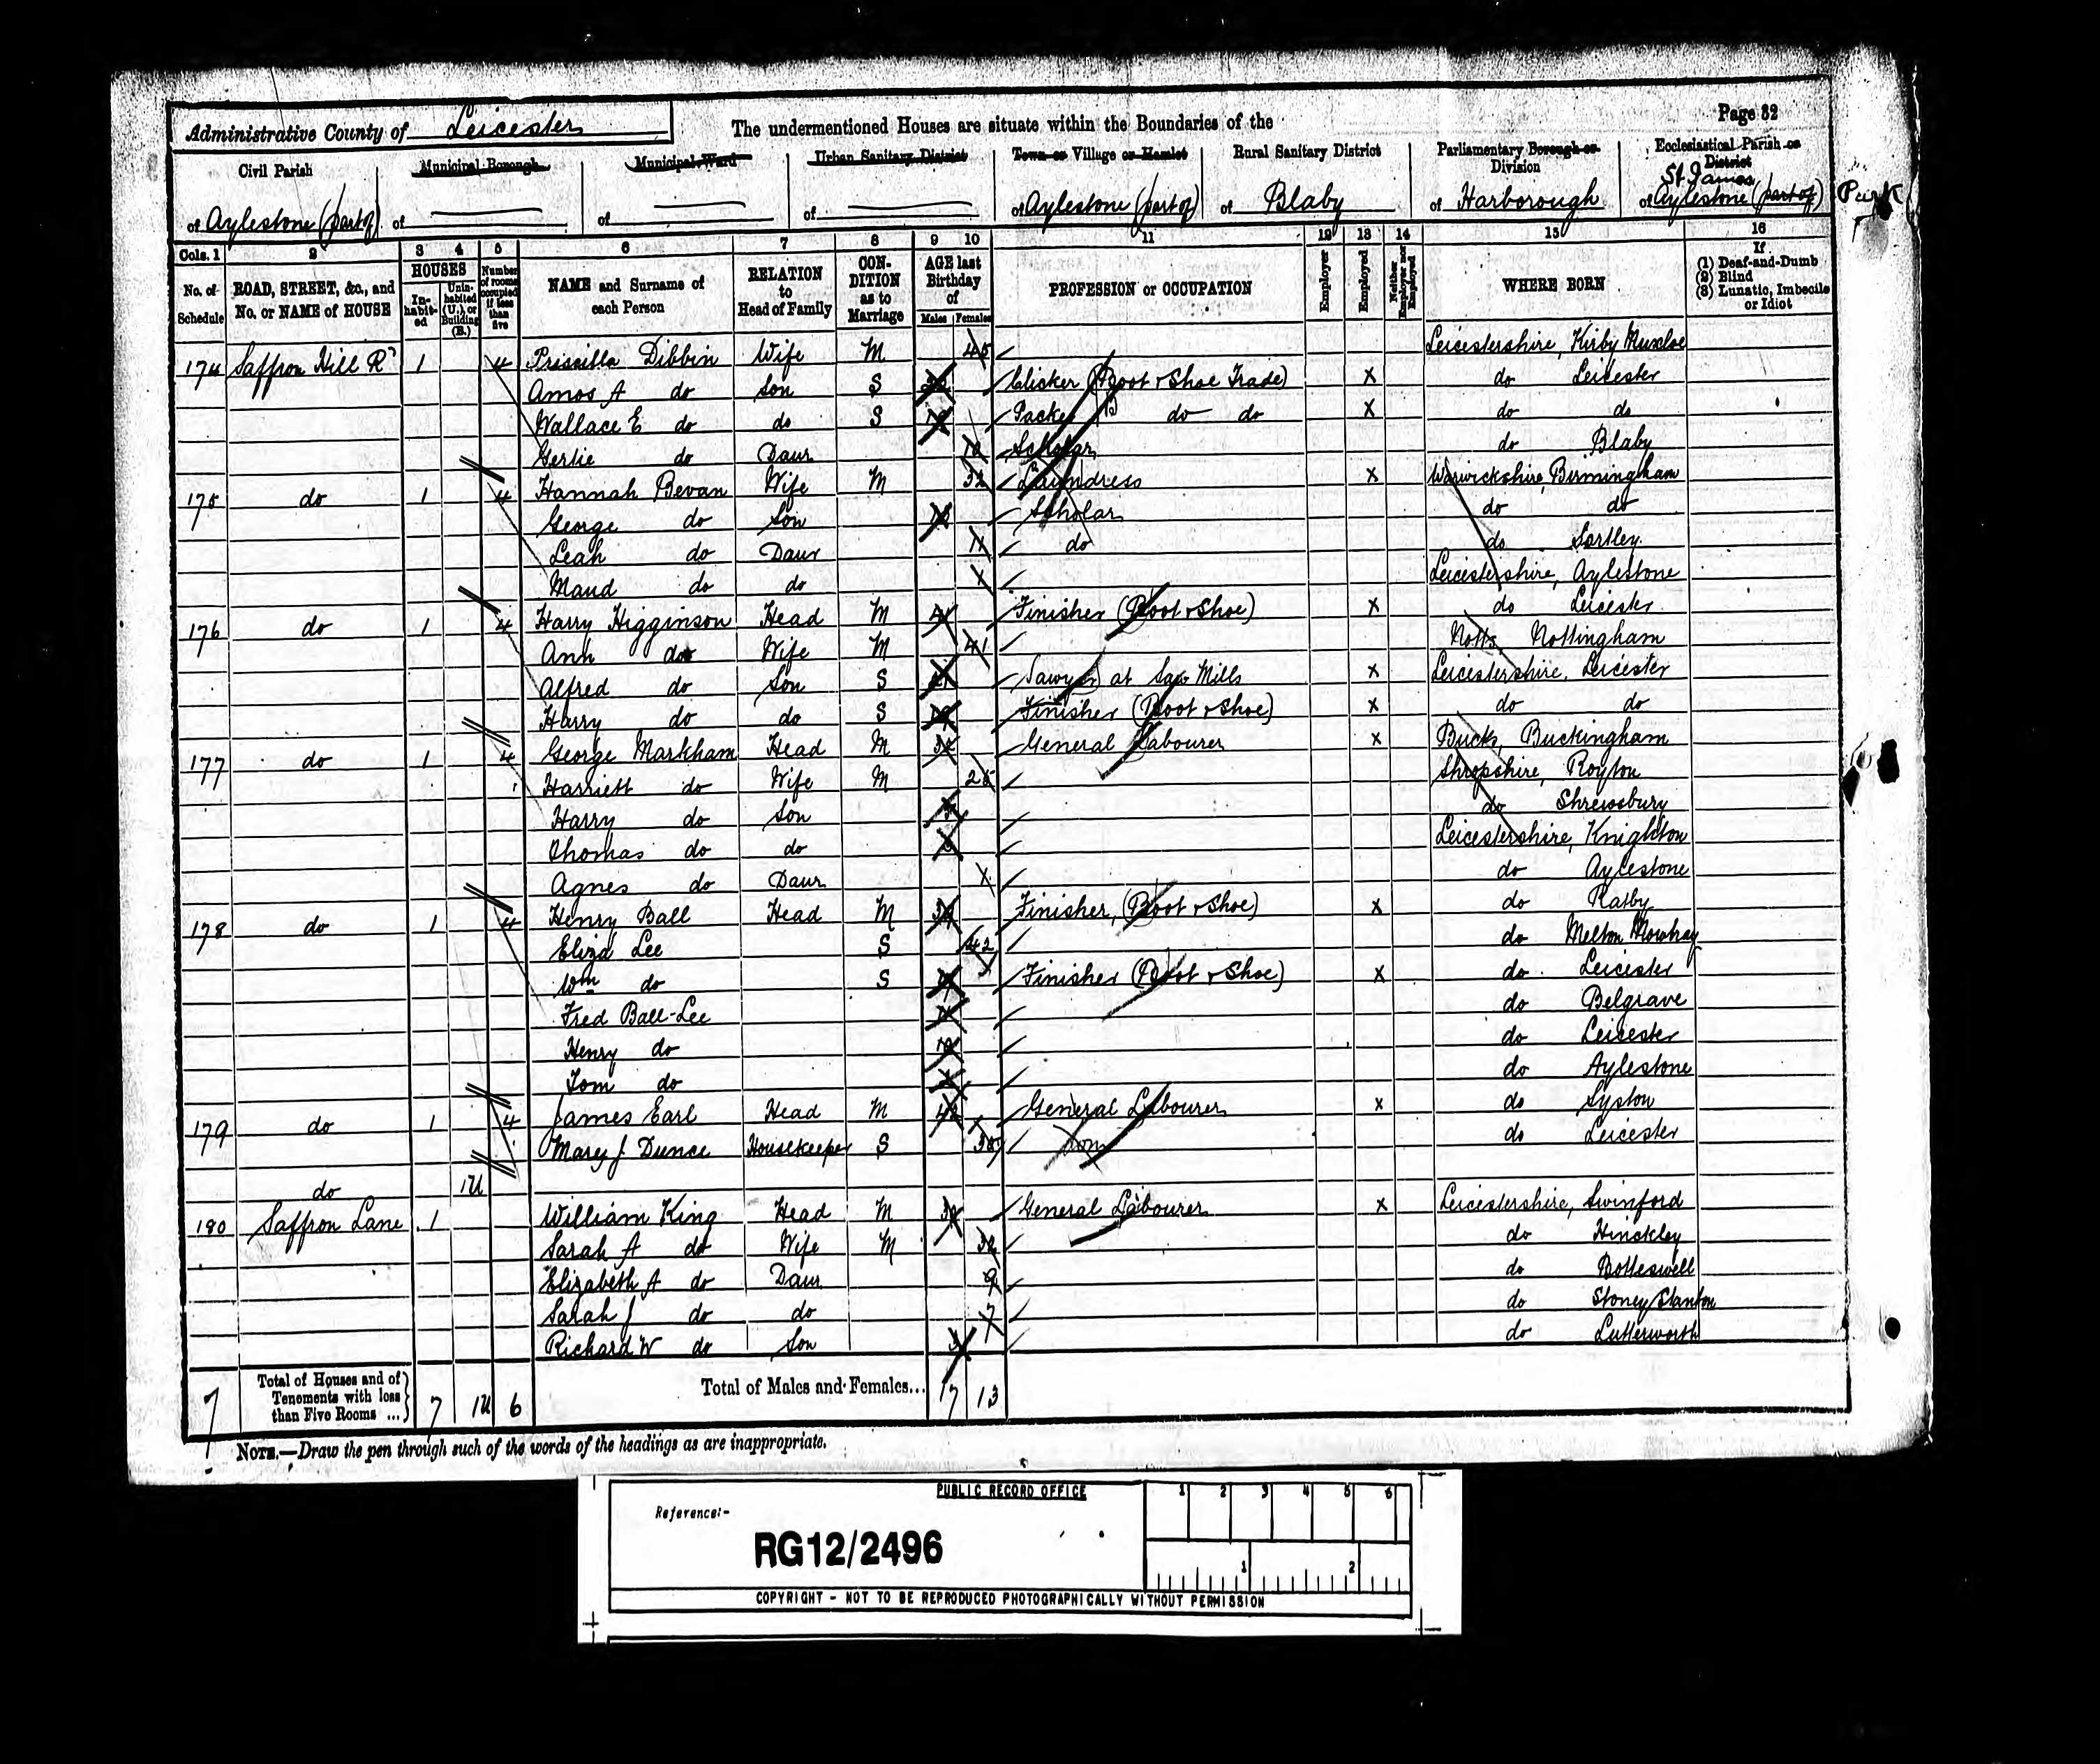 Page 32
Administrative County of Leicester
The undermentioned Houses are situate within the Boundaries of the
Civil Parish of Aylestone (part of)
Municipal Borough of
Municipal Ward of
Urban Sanitary District of
Town or Village or Hamlet of Aylestone (part of)
Rural Sanitary District of Blaby
Parliamentary Borough or Division of Harborough
Ecclesiastical Parish or District of St James Aylestone (part of) Park
Cols. 1 2 3 4 5 6 7 8 9 10 11 12 13 14 15 16
No. of Schedule
ROAD, STREET, &c., and No. or NAME of HOUSE
HOUSES
Inhabited
Uninhabited (U.) or Building (B.)
Number of rooms occupied if less than five
NAME and Surname of each Person
RELATION to Head of Family
CONDITION as to Marriage
AGE last Birthday of
Males Females
PROFESSION or OCCUPATION
Employer
Employed
Neither Employer nor Employed
WHERE BORN
If (1) Deaf-and-Dumb (2) Blind (3) Lunatic, Imbecile or Idiot
174 Saffron Hill Rd 1 4 Prissilla Dibbin Wife M 45 Leicestershire, Kirby Muxloe
Amos A do Son S Clicker (Boot & Shoe Trade) X do Leicester
Wallace E do do S Packer do do X do do
Gertie do Daur 10 Scholar do Blaby
175 do 1 4 Hannah Bevan Wife M 32 Laundress X Warwickshire, Birmingham
George do Son Scholar do do
Leah do Daur 11 do do
Maud do do Leicestershire, Aylestone
176 do 1 4 Harry Higginson Head M Finisher (Boot & Shoe) X do Leicester
Ann do Wife M 41 Notts. Nottingham
Alfred do Son S Sawyer at Saw Mills X Leicestershire, Leicester
Harry do do S Finisher (Boot & Shoe) X do do
177 do 1 4 George Markham Head M General Labourer X Bucks, Buckingham
Harriett do Wife M Shropshire, Royton
Harry do Son do Shrewsbury
Thomas do do Leicestershire, Knighton
Agnes do Daur do Aylestone
178 do 1 4 Henry Ball Head M Finisher, (Boot & Shoe) X do Ratby
Eliza Lee S 42 do Melton Mowbray
Wm do S Finisher (Boot & Shoe) X do Leicester
Fred Ball-Lee do Belgrave
Henry do do Leicester
Tom do do Aylestone
179 do 1 4 James Earl Head M General Labourer X do Syston
Mary J Dunce Housekeeper S Dom do Leicester
do 1U
180 Saffron Lane 1 William King Head M General Labourer X Leicestershire, Swinford
Sarah A do Wife M 32 do Hinckley
Elizabeth A do Daur 9 do Botteswell
Sarah J do do 7 do Stoney Stanton
Richard W do Son do Lutterworth
7 Total of Houses and of Tenements with less than Five Rooms ... 7 1U 6 Total of Males and Females... 17 13
NOTE.—Draw the pen through such of the words of the headings as are inappropriate.
PUBLIC RECORD OFFICE
1 2 3 4 5 6
Reference:-
RG12/2496
1 2
COPYRIGHT - NOT TO BE REPRODUCED PHOTOGRAPHICALLY WITHOUT PERMISSION